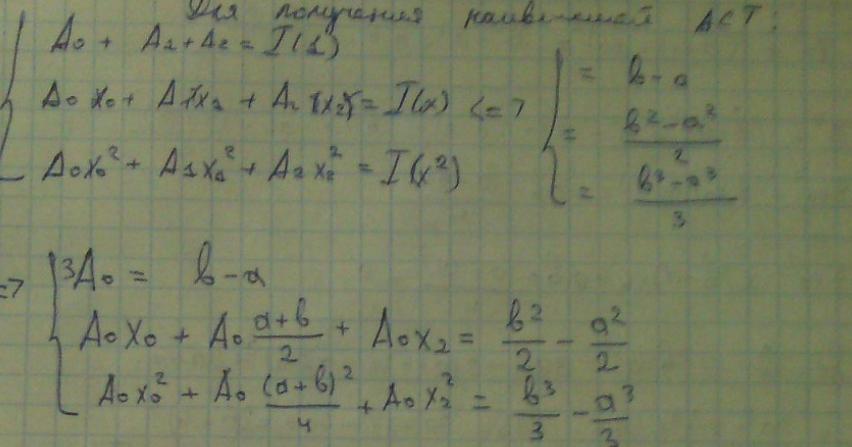 Для получения наивысшей АСТ:
A₀ + A₁ + A₂ = I(1)
A₀x₀ + A₁x₁ + A₂x₂ = I(x) <=>
A₀x₀² + A₁x₁² + A₂x₂² = I(x²)
= b-a
= (b²-a²)/2
= (b³-a³)/3
=> 3A₀ = b-a
A₀x₀ + A₀ (a+b)/2 + A₀x₂ = b²/2 - a²/2
A₀x₀² + A₀ (a+b)²/4 + A₀x₂² = b³/3 - a³/3